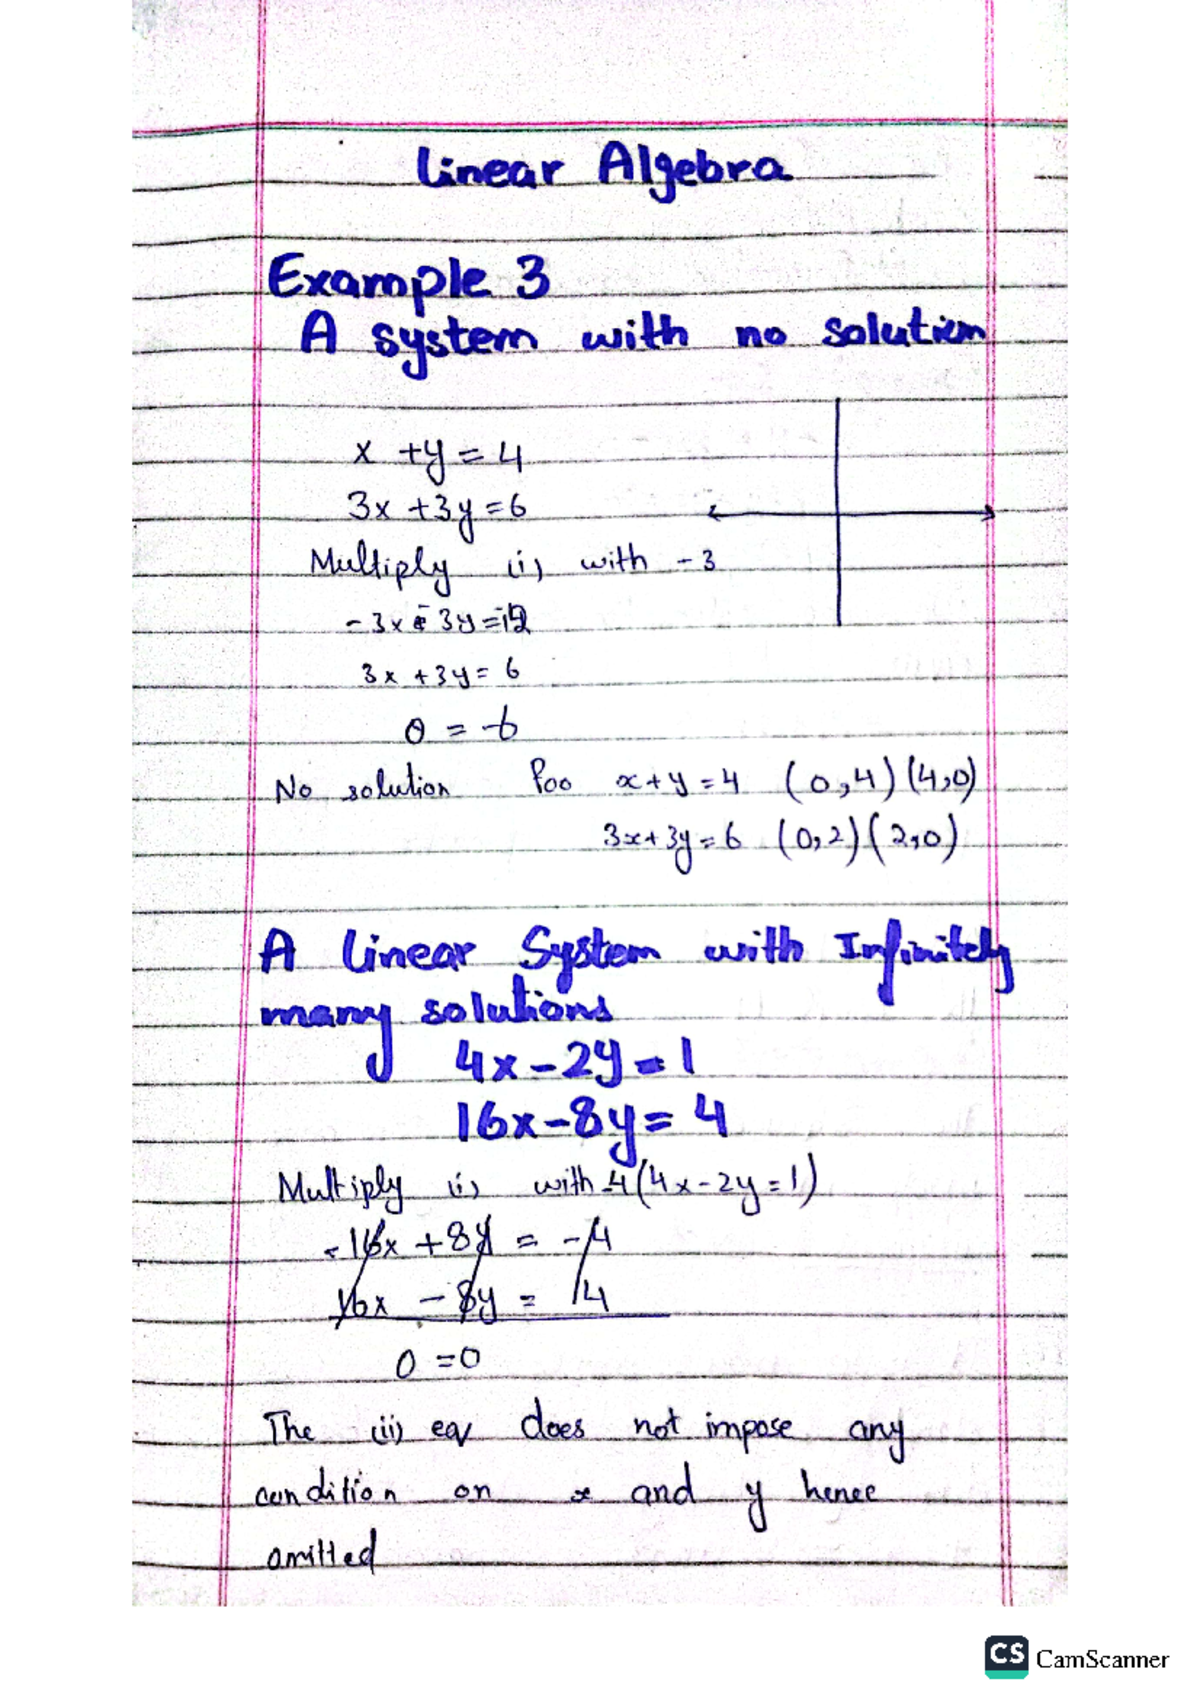 Linear Algebra
Example 3
A system with no solution
x + y = 4
3x + 3y = 6
Multiply (i) with - 3
- 3x - 3y = -12
3x + 3y = 6
0 = -6
No solution For x + y = 4 (0,4) (4,0)
3x + 3y = 6 (0,2) (2,0)
A linear System with Infinitely
many solutions
4x - 2y = 1
16x - 8y = 4
Multiply (i) with -4 (4x - 2y = 1)
- 16x + 8y = - 4
16x - 8y = 4
0 = 0
The (ii) eq does not impose any
condition on x and y hence
omitted
CS CamScanner